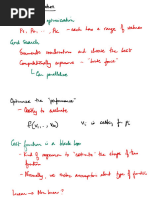 optimization
P₁, P₂, ..., Pₙ - each has a range of values
Grid Search
Generate combinations and choose the best
Computationally expensive - "brute force"
↳ Can parallelise
Optimise the "performance"
- Ability to evaluate
F(v₁, ..., vₙ) vᵢ is setting for pᵢ
Cost function is a black box
- Kind of expensive to "estimate" the shape of the function
- Normally, we make assumption about type of function
Linear → Non linear?